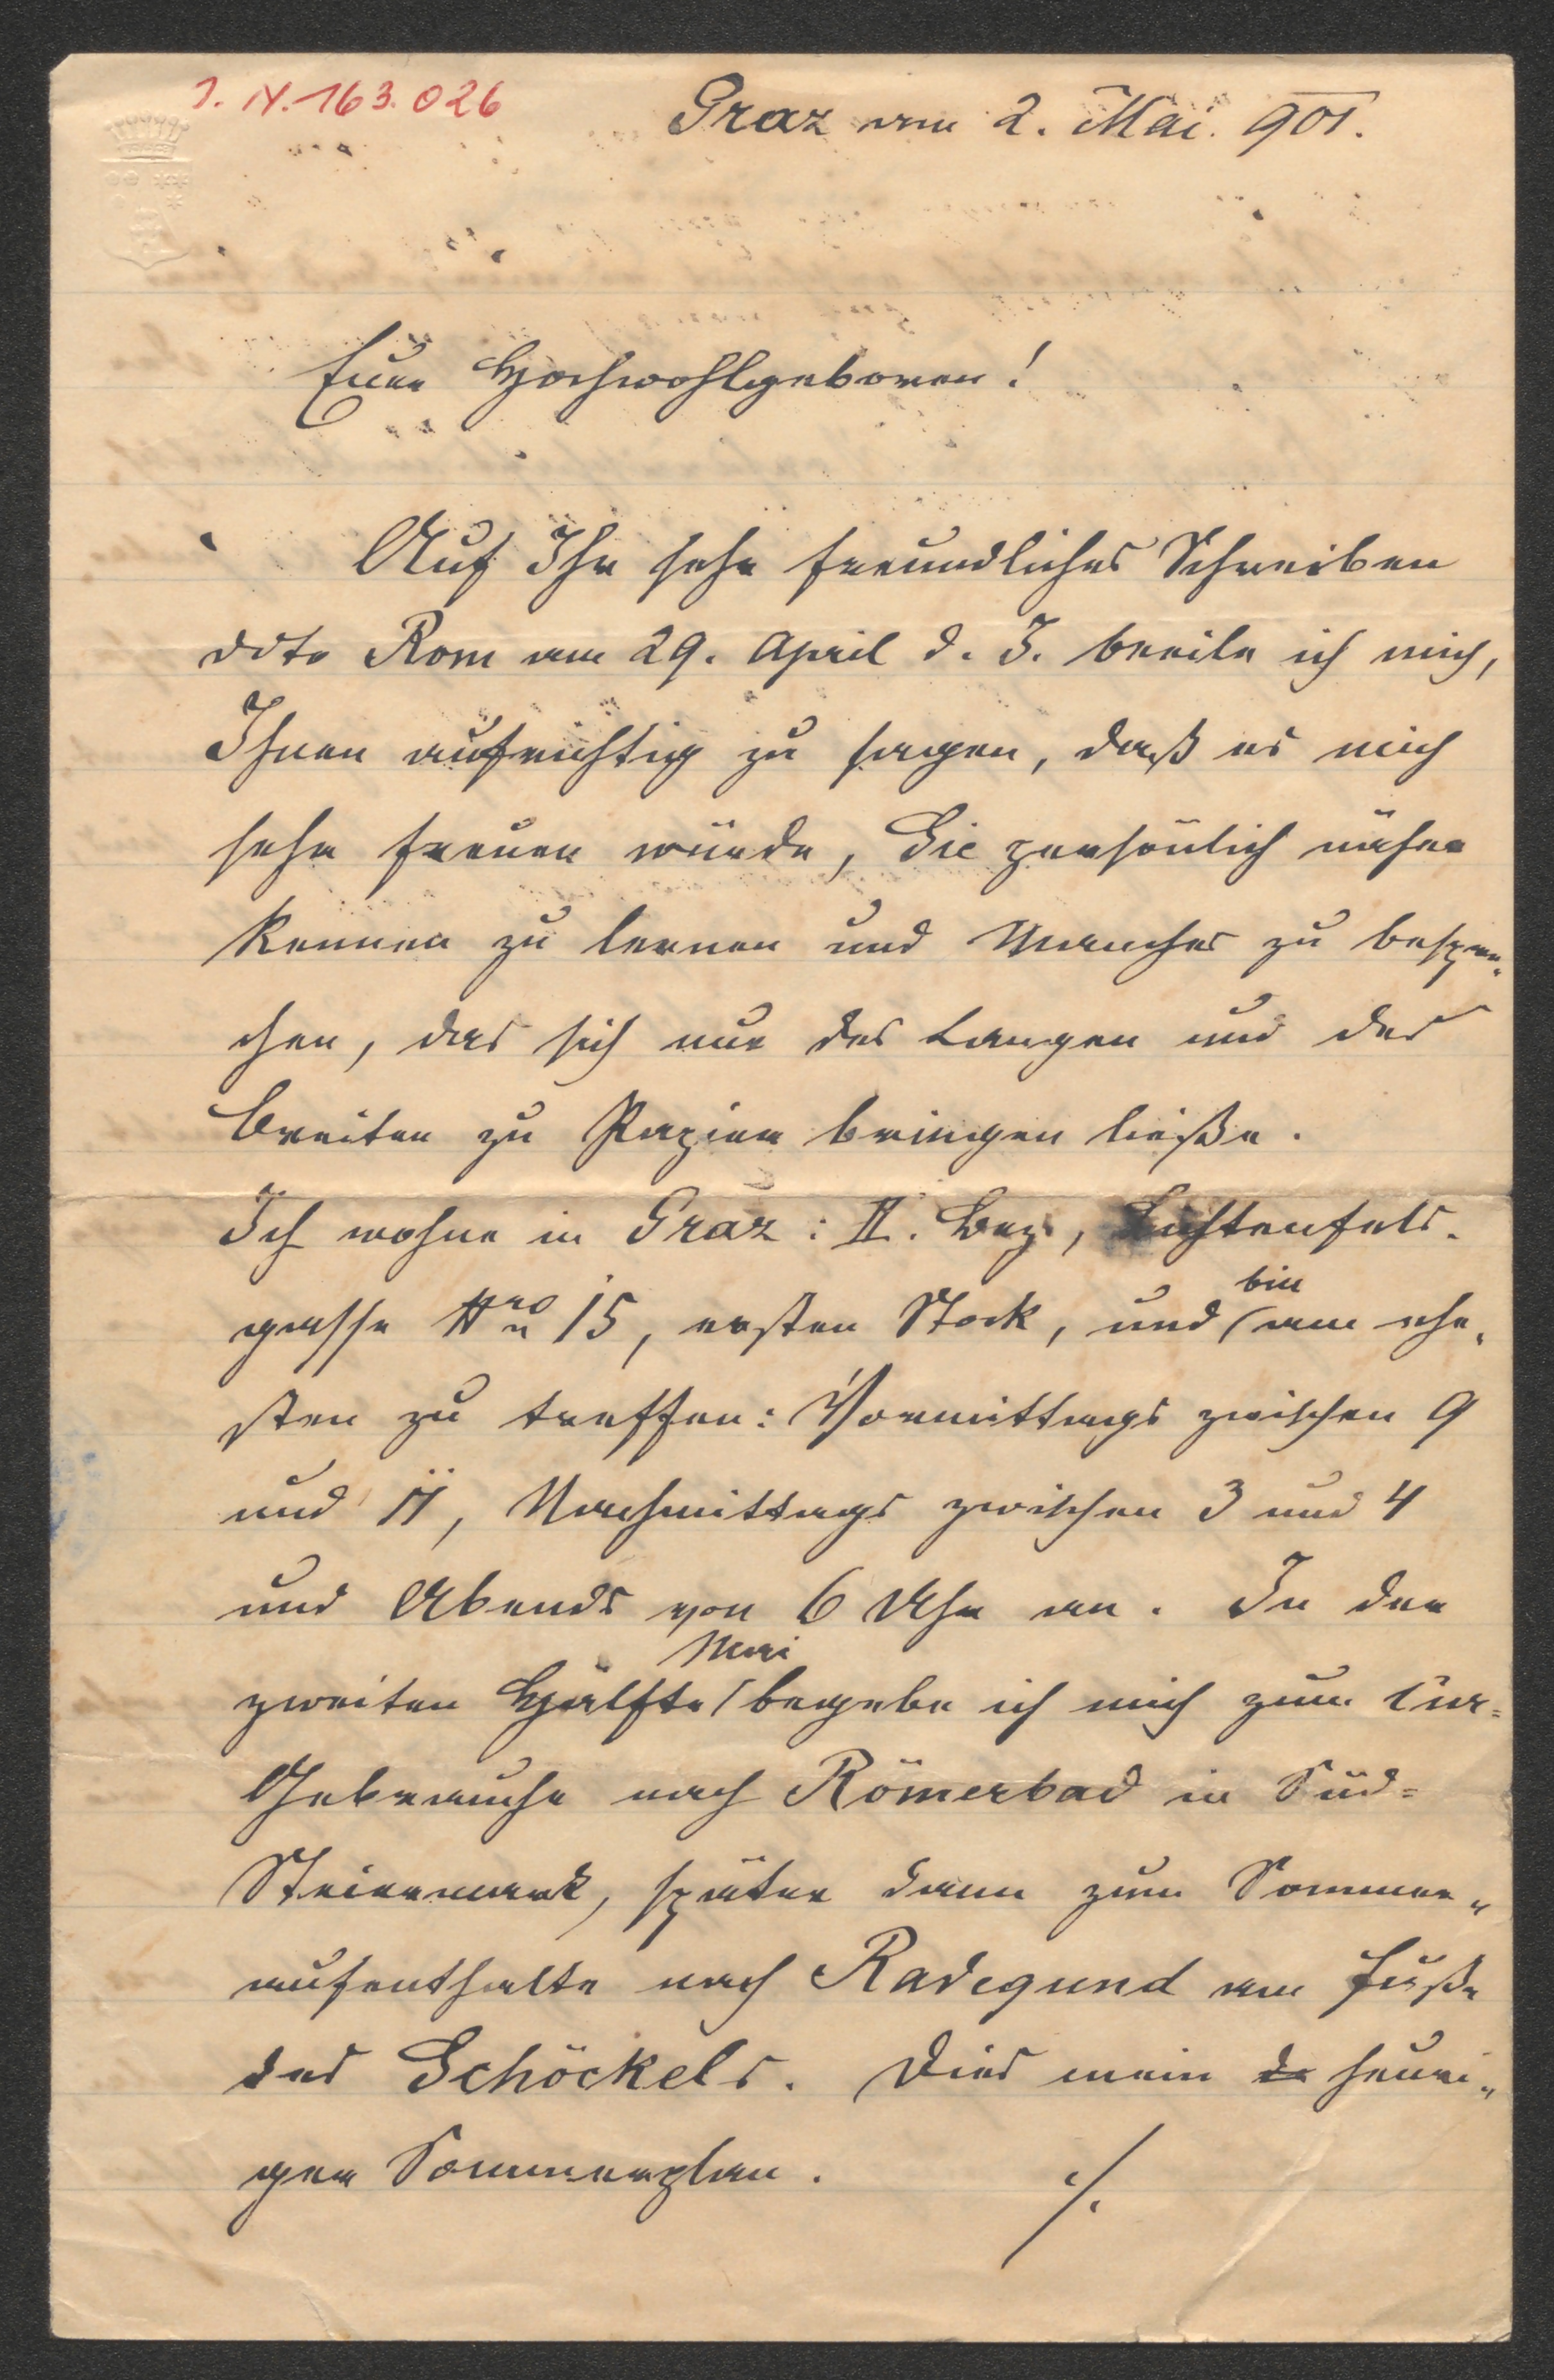 I. N. 163.026
Graz am 2. Mai. 901.
Euer Hochwohlgeboren!
Auf Ihr sehr freundliches Schreiben
ddto Rom am 29. April d. J. beeile ich mich,
Ihnen aufrichtig zu sagen, daß es mich
sehr freuen würde, Sie persönlich näher
kennen zu lernen und Manches zu bespre„
chen, das sich nur des Langen und des
Breiten zu Papier bringen ließe.
Ich wohne in Graz: II. Bez., Lichtenfels-
gasse Nro 15, ersten Stock, und bin am ehe„
sten zu treffen: Vormittags zwischen 9
und 11, Nachmittags zwischen 3 und 4
und Abends von 6 Uhr an. In der
zweiten Hälfte Mai begebe ich mich zum Cur=
Gebrauche nach Römerbad in Süd=
Steiermark, später dann zum Sommer„
aufenthalte nach Radegund am Fuße
des Schöckels. Dies mein heuri„
ger Sommerplan. ./.